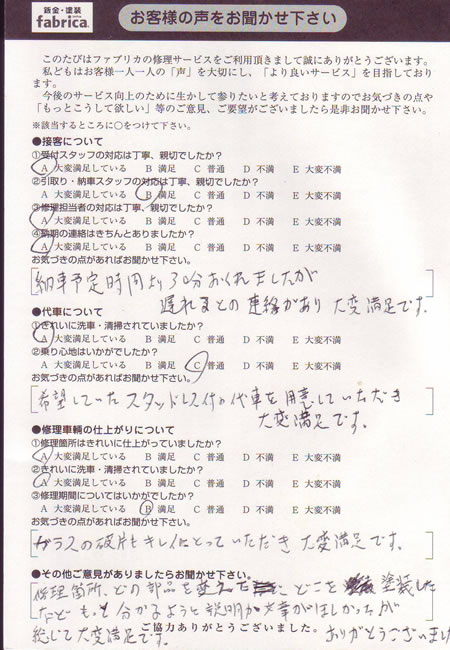 鈑金・塗装
fabrica.
お客様の声をお聞かせ下さい
このたびはファブリカの修理サービスをご利用頂きまして誠にありがとうございます。
私どもはお客様一人一人の「声」を大切にし、「より良いサービス」を目指しており
ます。
今後のサービス向上のために生かして参りたいと考えておりますのでお気づきの点や
「もっとこうして欲しい」等のご意見、ご要望がございましたら是非お聞かせ下さい。
※該当するところに○をつけて下さい。
●接客について
①受付スタッフの対応は丁寧、親切でしたか？
A 大変満足している B 満足 C 普通 D 不満 E 大変不満
②引取り・納車スタッフの対応は丁寧、親切でしたか？
A 大変満足している B 満足 C 普通 D 不満 E 大変不満
③修理担当者の対応は丁寧、親切でしたか？
A 大変満足している B 満足 C 普通 D 不満 E 大変不満
④納期の連絡はきちんとありましたか？
A 大変満足している B 満足 C 普通 D 不満 E 大変不満
お気づきの点があればお聞かせ下さい。
納車予定時間より30分おくれましたが
遅れるとの連絡があり 大変満足です。
●代車について
①きれいに洗車・清掃されていましたか？
A 大変満足している B 満足 C 普通 D 不満 E 大変不満
②乗り心地はいかがでしたか？
A 大変満足している B 満足 C 普通 D 不満 E 大変不満
お気づきの点があればお聞かせ下さい。
希望していたスタッドレス付の代車を用意していただき
大変満足です。
●修理車輌の仕上がりについて
①修理箇所はきれいに仕上がっていましたか？
A 大変満足している B 満足 C 普通 D 不満 E 大変不満
②きれいに洗車・清掃されていましたか？
A 大変満足している B 満足 C 普通 D 不満 E 大変不満
③修理期間についてはいかがでしたか？
A 大変満足している B 満足 C 普通 D 不満 E 大変不満
お気づきの点があればお聞かせ下さい。
ガラスの破片もキレイにとっていただき 大変満足です。
●その他ご意見がありましたらお聞かせ下さい。
修理箇所、どの部品を変えた どこを 塗装した
などもっと分かるように説明か文章がほしかったが
総じて大変満足です。 ありがとうございました
ご協力ありがとうございました。